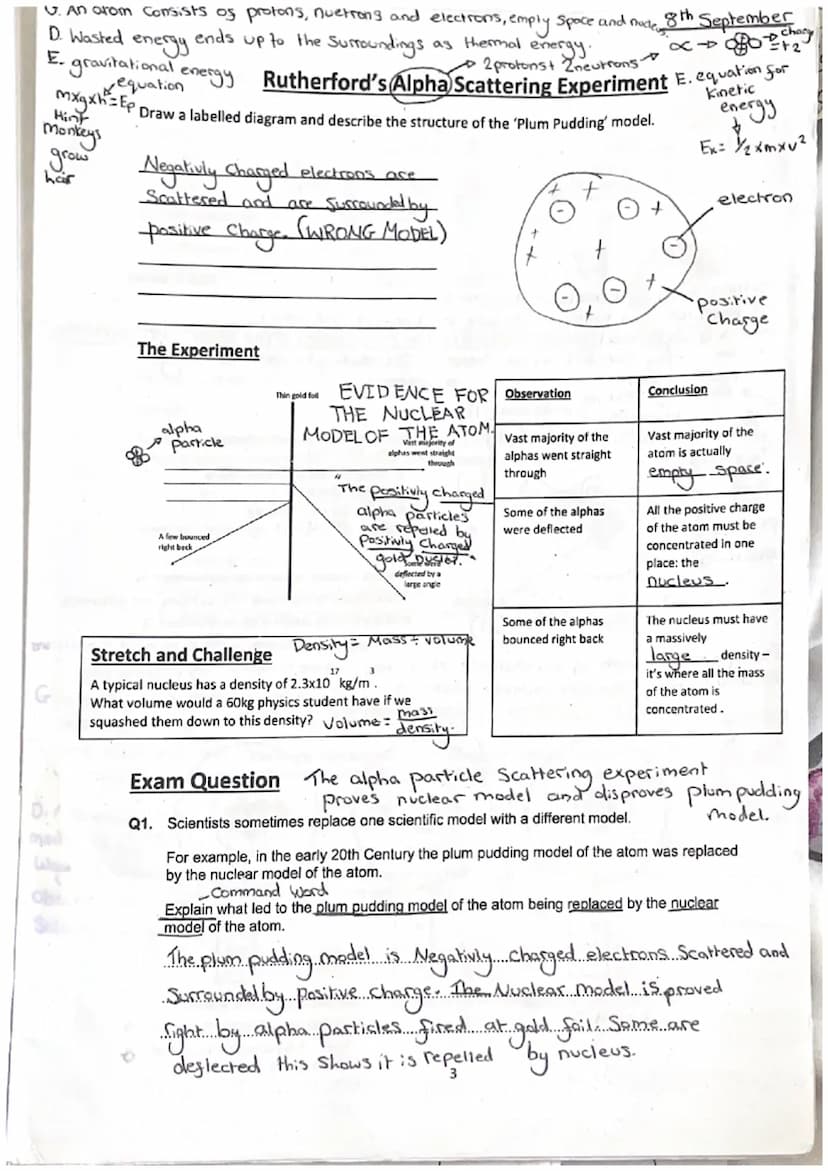 An atom Consists of protons, nuetrons and electrons, empty space and
8th September
D. Wasted energy ends up to the surroundings as thermal energy.
α → = +2
charge
E. gravitational energy
equation
2protons + 2neutrons
Rutherford's Alpha Scattering Experiment
E. equation for
Kinetic
energy
mxgxh=Ep
Hint
Monkeys
grow
hair
Draw a labelled diagram and describe the structure of the 'Plum Pudding' model.
Ek= 1/2 xmxv²
Negativly Charged electrons are
Scattered and are Surrounded by
positive Charge. (WRONG MODEL)
+ +
- - +
+
+ + -
- - +
+
electron
positive
Charge
The Experiment
Thin gold foil
EVIDENCE FOR
THE NUCLEAR
MODEL OF THE ATOM.
alpha
particle
Vast majority of
alphas went straight
through
"The positivly charged
alpha particles
are repelled by
Positivly Charged
gold nucleî."
A few bounced
right back
deflected by a
large angle
Observation
Conclusion
Vast majority of the
alphas went straight
through
Vast majority of the
atom is actually
empty space.
Some of the alphas
were deflected
All the positive charge
of the atom must be
concentrated in one
place: the
nucleus.
Some of the alphas
bounced right back
The nucleus must have
a massively
large density –
it's where all the mass
of the atom is
concentrated.
Stretch and Challenge
Density = Mass ÷ volume
A typical nucleus has a density of 2.3x10¹⁷ kg/m³.
What volume would a 60kg physics student have if we
squashed them down to this density? Volume = mass
density.
Exam Question
The alpha particle Scattering experiment
proves nuclear model and disproves plum pudding
model.
Q1. Scientists sometimes replace one scientific model with a different model.
For example, in the early 20th Century the plum pudding model of the atom was replaced
by the nuclear model of the atom.
Command Word
Explain what led to the plum pudding model of the atom being replaced by the nuclear
model of the atom.
The plum pudding model is Negativly charged electrons Scattered and
Surrounded by positive charge. The Nuclear model is proved
right by alpha particles fired at gold foil. Some are
deflected this shows it is repelled by nucleus.
3